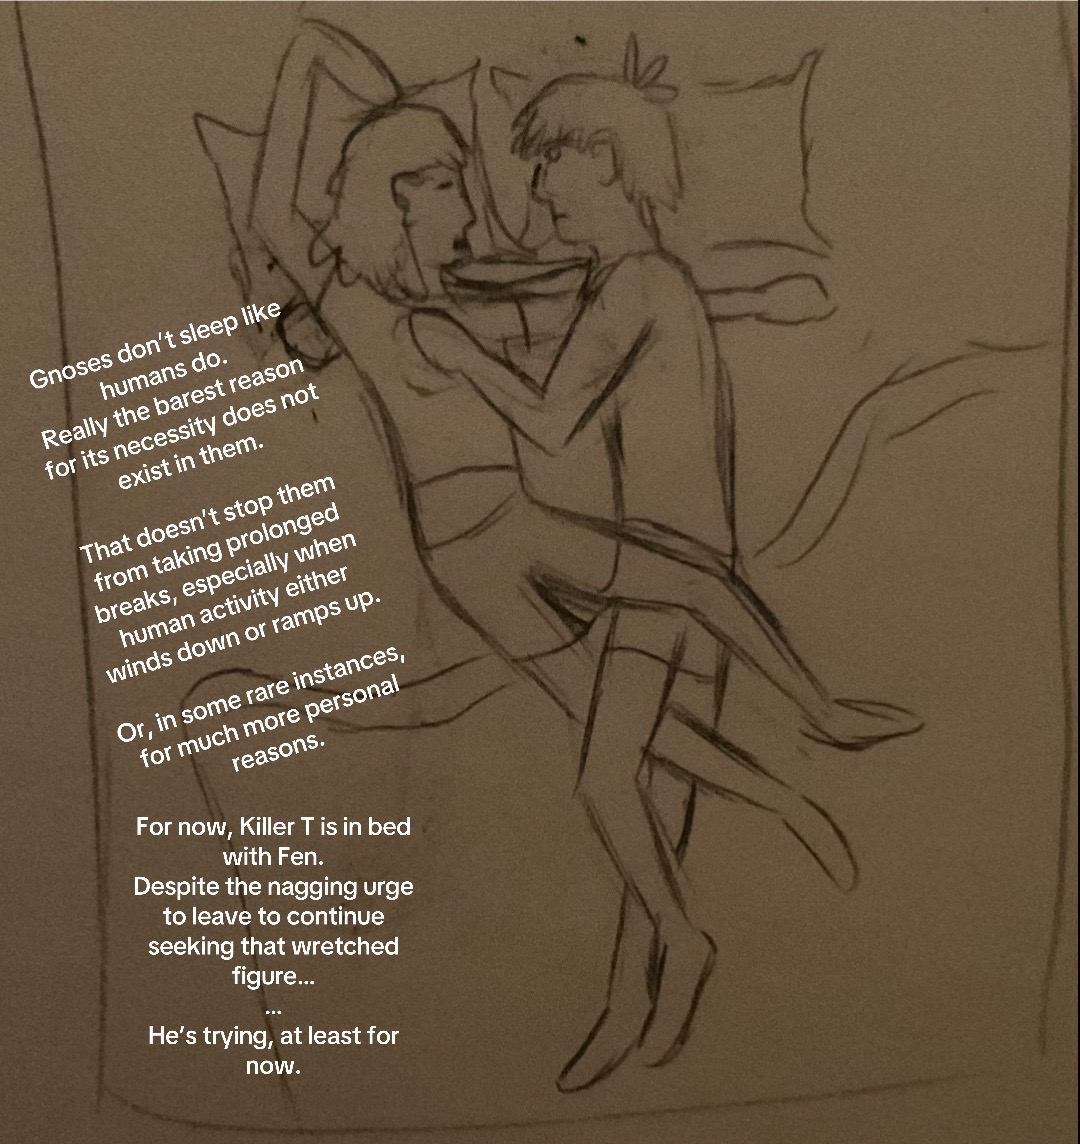 Gnoses don't sleep like
humans do.
Really the barest reason
for its necessity does not
exist in them.
That doesn't stop them
from taking prolonged
breaks, especially when
human activity either
winds down or ramps up.
Or, in some rare instances,
for much more personal
reasons.
For now, Killer T is in bed
with Fen.
Despite the nagging urge
to leave to continue
seeking that wretched
figure...
...
He's trying, at least for
now.